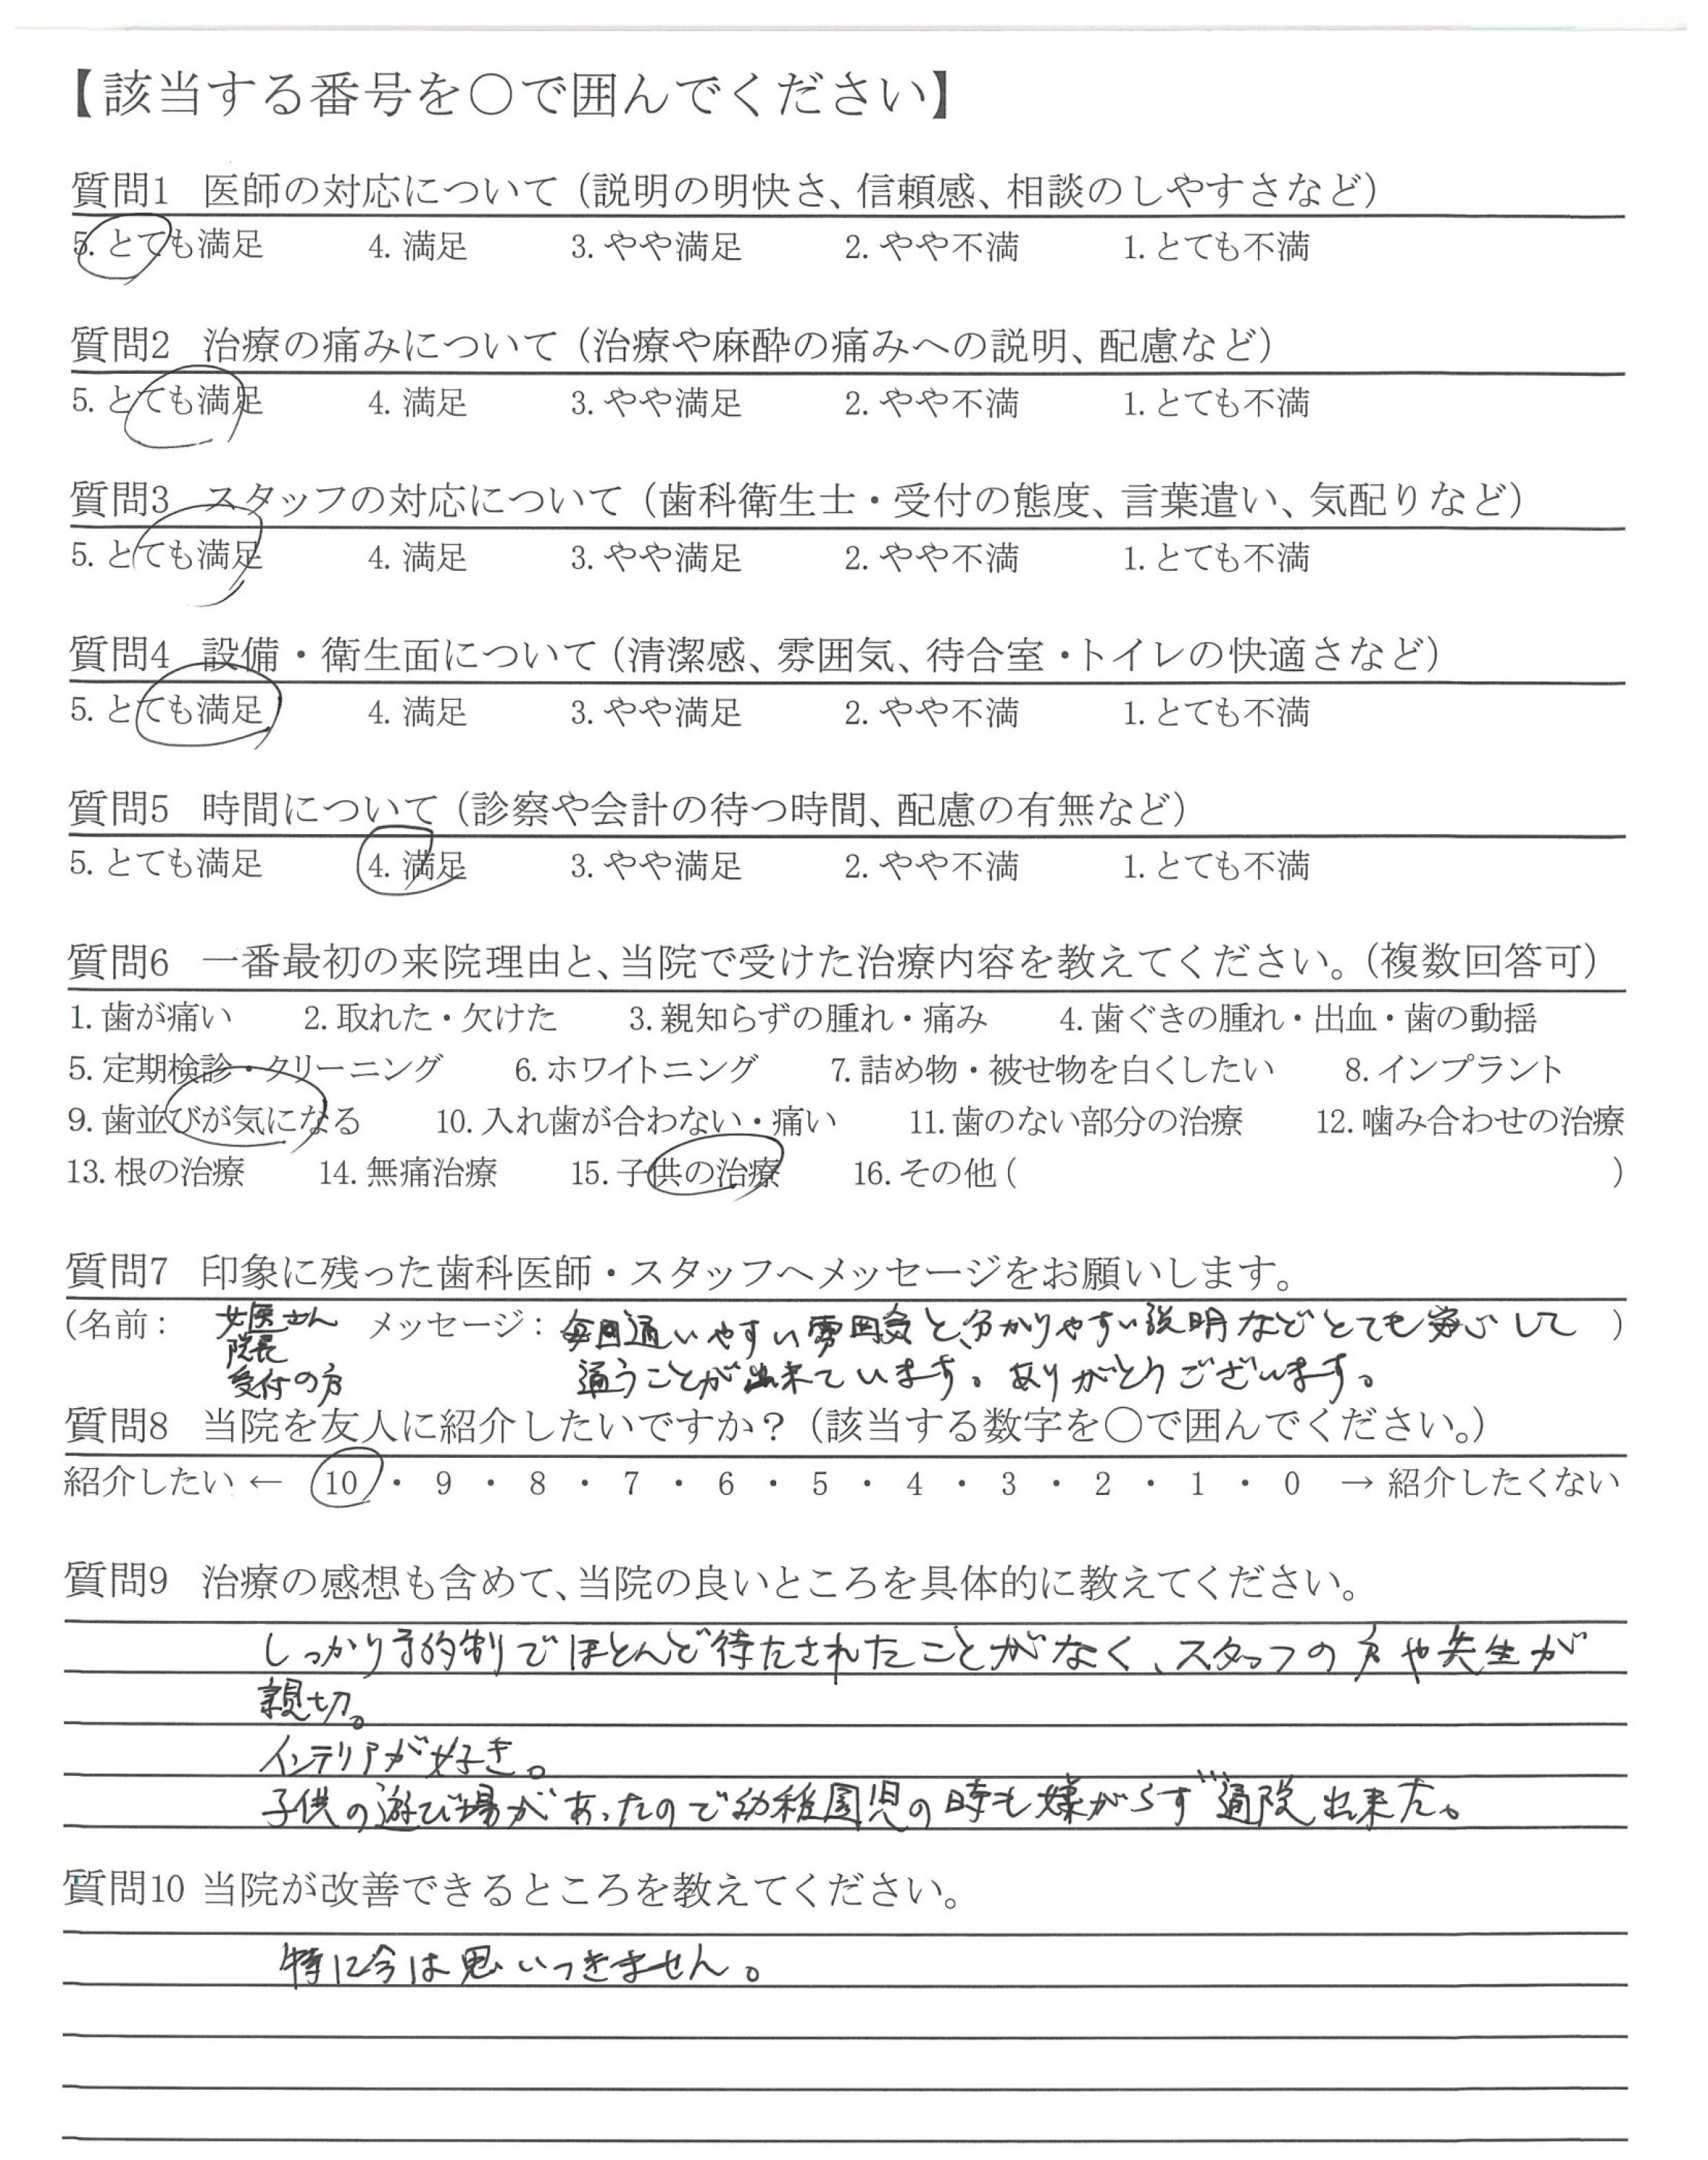 【該当する番号を○で囲んでください】
質問1 医師の対応について（説明の明快さ、信頼感、相談のしやすさなど）
5. とても満足 4. 満足 3. やや満足 2. やや不満 1. とても不満
質問2 治療の痛みについて（治療や麻酔の痛みへの説明、配慮など）
5. とても満足 4. 満足 3. やや満足 2. やや不満 1. とても不満
質問3 スタッフの対応について（歯科衛生士・受付の態度、言葉遣い、気配りなど）
5. とても満足 4. 満足 3. やや満足 2. やや不満 1. とても不満
質問4 設備・衛生面について（清潔感、雰囲気、待合室・トイレの快適さなど）
5. とても満足 4. 満足 3. やや満足 2. やや不満 1. とても不満
質問5 時間について（診察や会計の待つ時間、配慮の有無など）
5. とても満足 4. 満足 3. やや満足 2. やや不満 1. とても不満
質問6 一番最初の来院理由と、当院で受けた治療内容を教えてください。（複数回答可）
1. 歯が痛い 2. 取れた・欠けた 3. 親知らずの腫れ・痛み 4. 歯ぐきの腫れ・出血・歯の動揺
5. 定期検診・クリーニング 6. ホワイトニング 7. 詰め物・被せ物を白くしたい 8. インプラント
9. 歯並びが気になる 10. 入れ歯が合わない・痛い 11. 歯のない部分の治療 12. 噛み合わせの治療
13. 根の治療 14. 無痛治療 15. 子供の治療 16. その他（ ）
質問7 印象に残った歯科医師・スタッフへメッセージをお願いします。
（名前： 女医さん メッセージ： 毎回通いやすい雰囲気と、分かりやすい説明などとても安心して ）
院長
受付の方 通うことが出来ています。ありがとうございます。
質問8 当院を友人に紹介したいですか？（該当する数字を○で囲んでください。）
紹介したい ← 10 ・ 9 ・ 8 ・ 7 ・ 6 ・ 5 ・ 4 ・ 3 ・ 2 ・ 1 ・ 0 → 紹介したくない
質問9 治療の感想も含めて、当院の良いところを具体的に教えてください。
しっかり予約制でほとんど待たされたことがなく、スタッフの方や先生が
親切。
インテリアが好き。
子供の遊び場があったので幼稚園児の時も嫌がらず通院出来た。
質問10 当院が改善できるところを教えてください。
特に今は思いつきません。